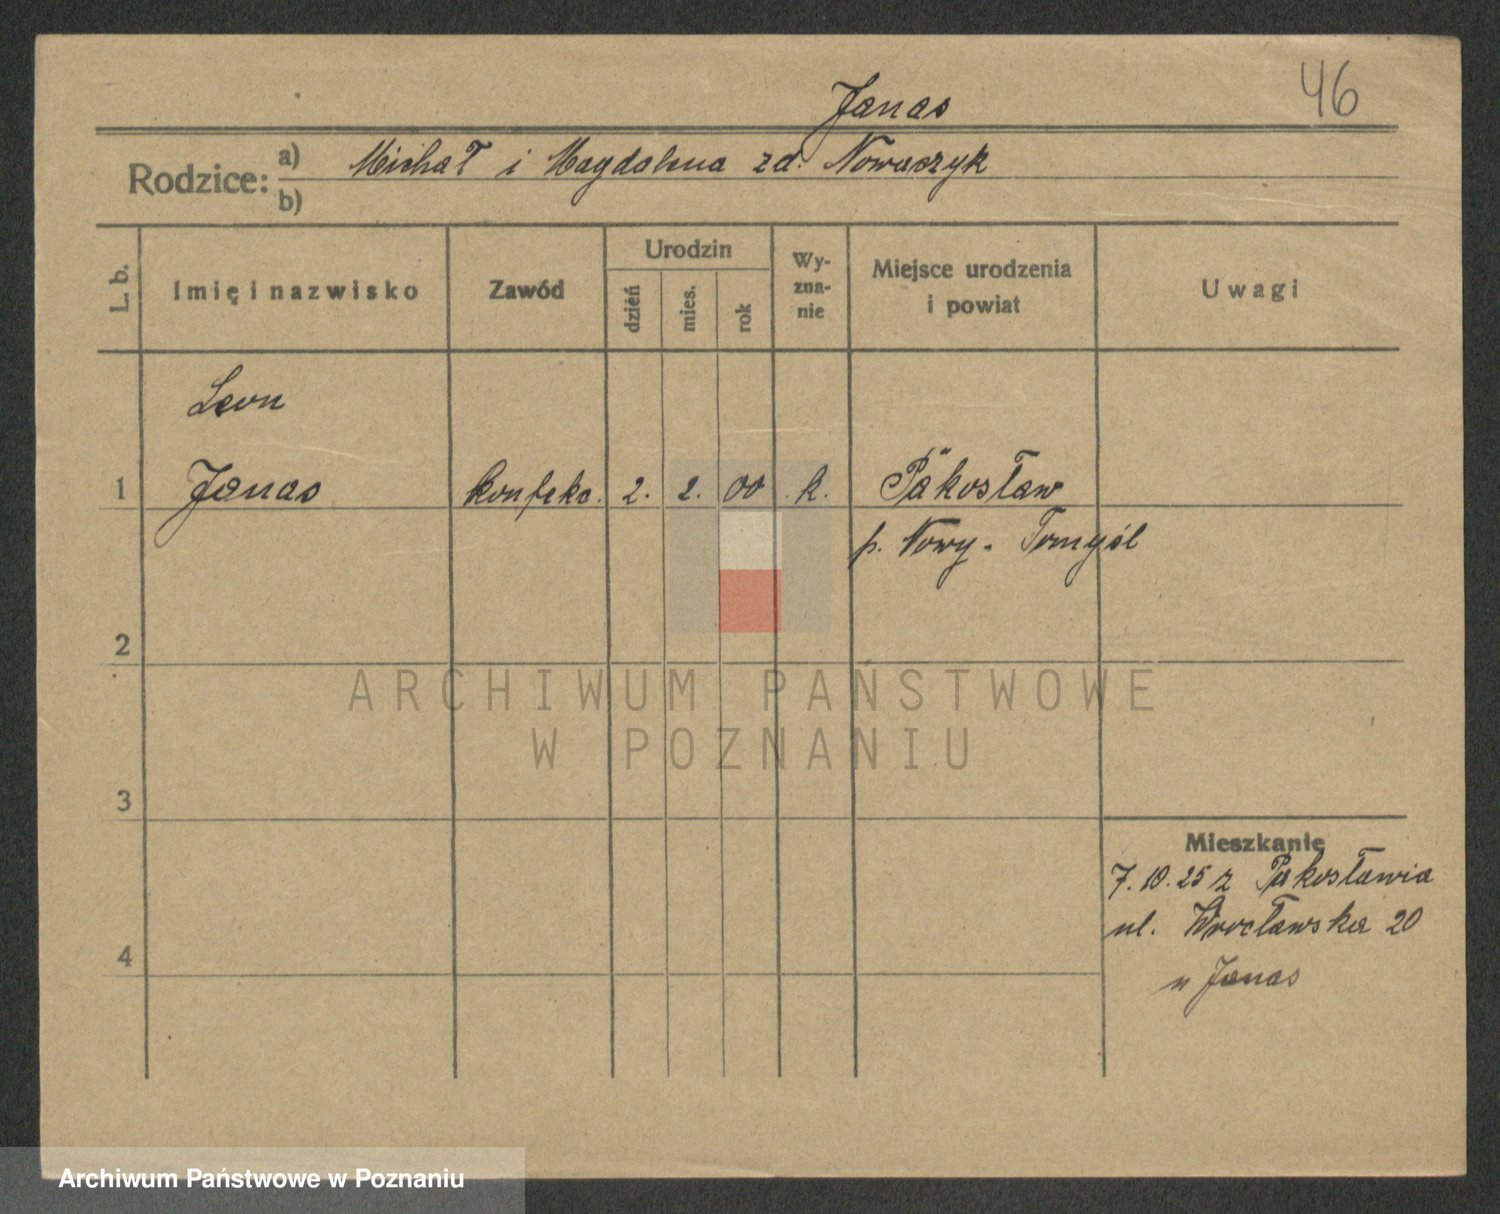 46
Janas
Rodzice: a) Michał i Magdalena zd. Nowaczyk
b)
L. b. Imię i nazwisko Zawód Urodzin dzień mies. rok Wyzna-nie Miejsce urodzenia i powiat Uwagi
Leon
1 Janas konfekc. 2. 2. 00 k. Pakosław
p. Nowy-Tomyśl
2
ARCHIWUM PAŃSTWOWE
W POZNANIU
3
Mieszkanie
7.10.25 z Pakosławia
ul. Wrocławska 20
4
u Janas
Archiwum Państwowe w Poznaniu